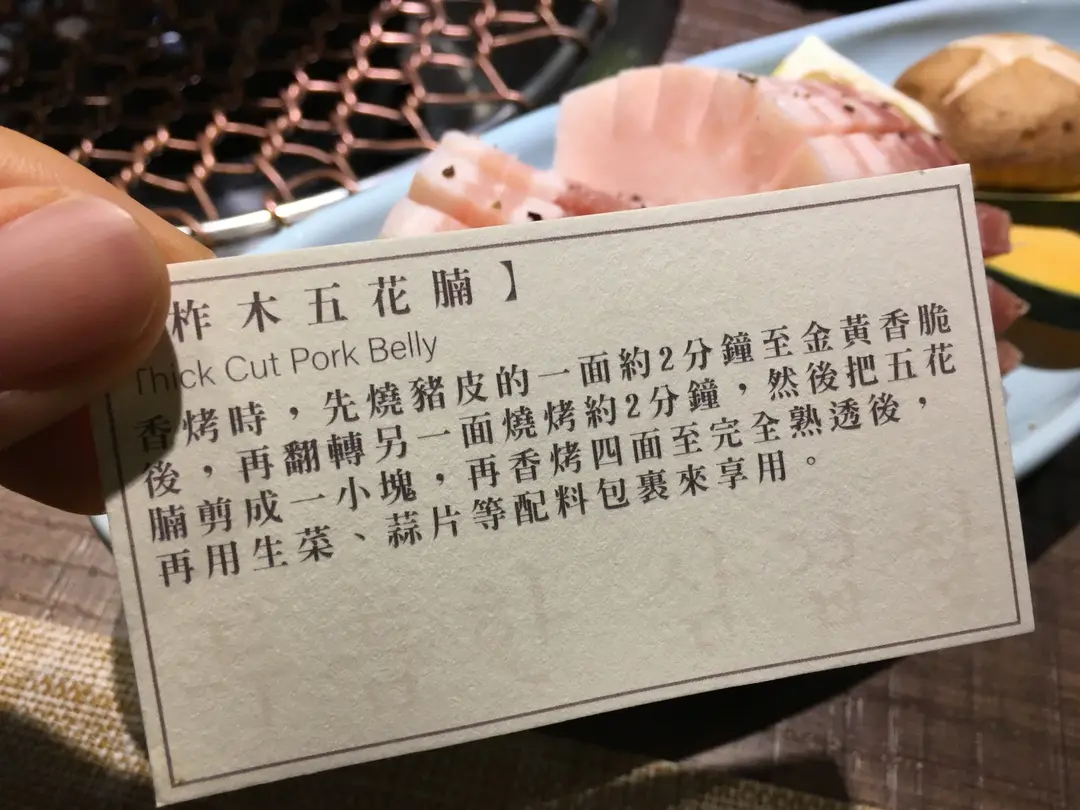 柞木五花腩】
Thick Cut Pork Belly
香烤時，先燒豬皮的一面約2分鐘至金黃香脆
後，再翻轉另一面燒烤約2分鐘，然後把五花
腩剪成一小塊，再香烤四面至完全熟透後，
再用生菜、蒜片等配料包裹來享用。